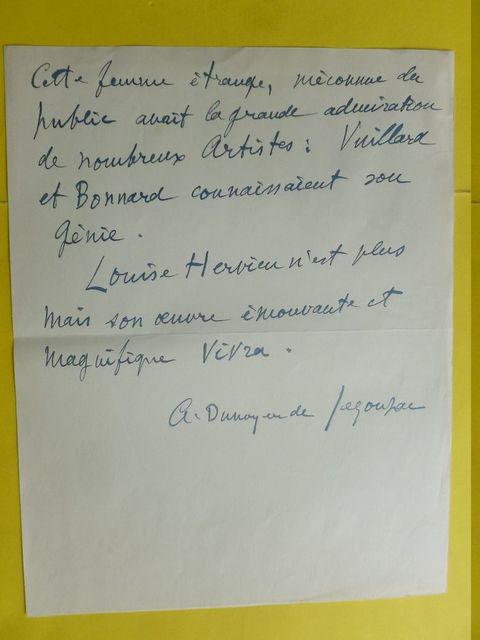 Cette femme étrange, méconnue du
public avait la grande admiration
de nombreux Artistes : Vuillard
et Bonnard connaissaient son
génie.
Louise Hervieu n'est plus
mais son œuvre émouvante et
magnifique vivra.
A. Dunoyer de Segonzac